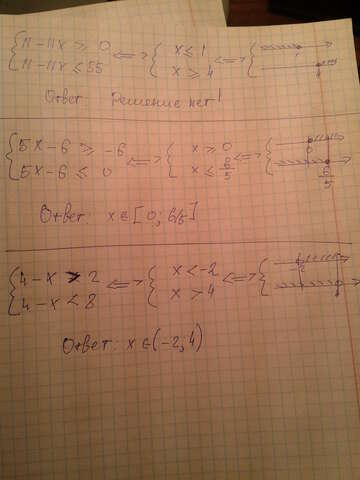 { 11-11x ≥ 0 <=> { x ≤ 1 <=> {
11-11x ≤ 55 x ≥ 4
1 4
Ответ: Решение нет!
{ 5x-6 ≥ -6 <=> { x ≥ 0 <=> {
5x-6 ≤ 0 x ≤ 6/5
0
6/5
Ответ: x ∈ [0; 6/5]
{ 4-x > 2 <=> { x < -2 <=> {
4-x < 8 x > 4
-2
Ответ: x ∈ (-2; 4)